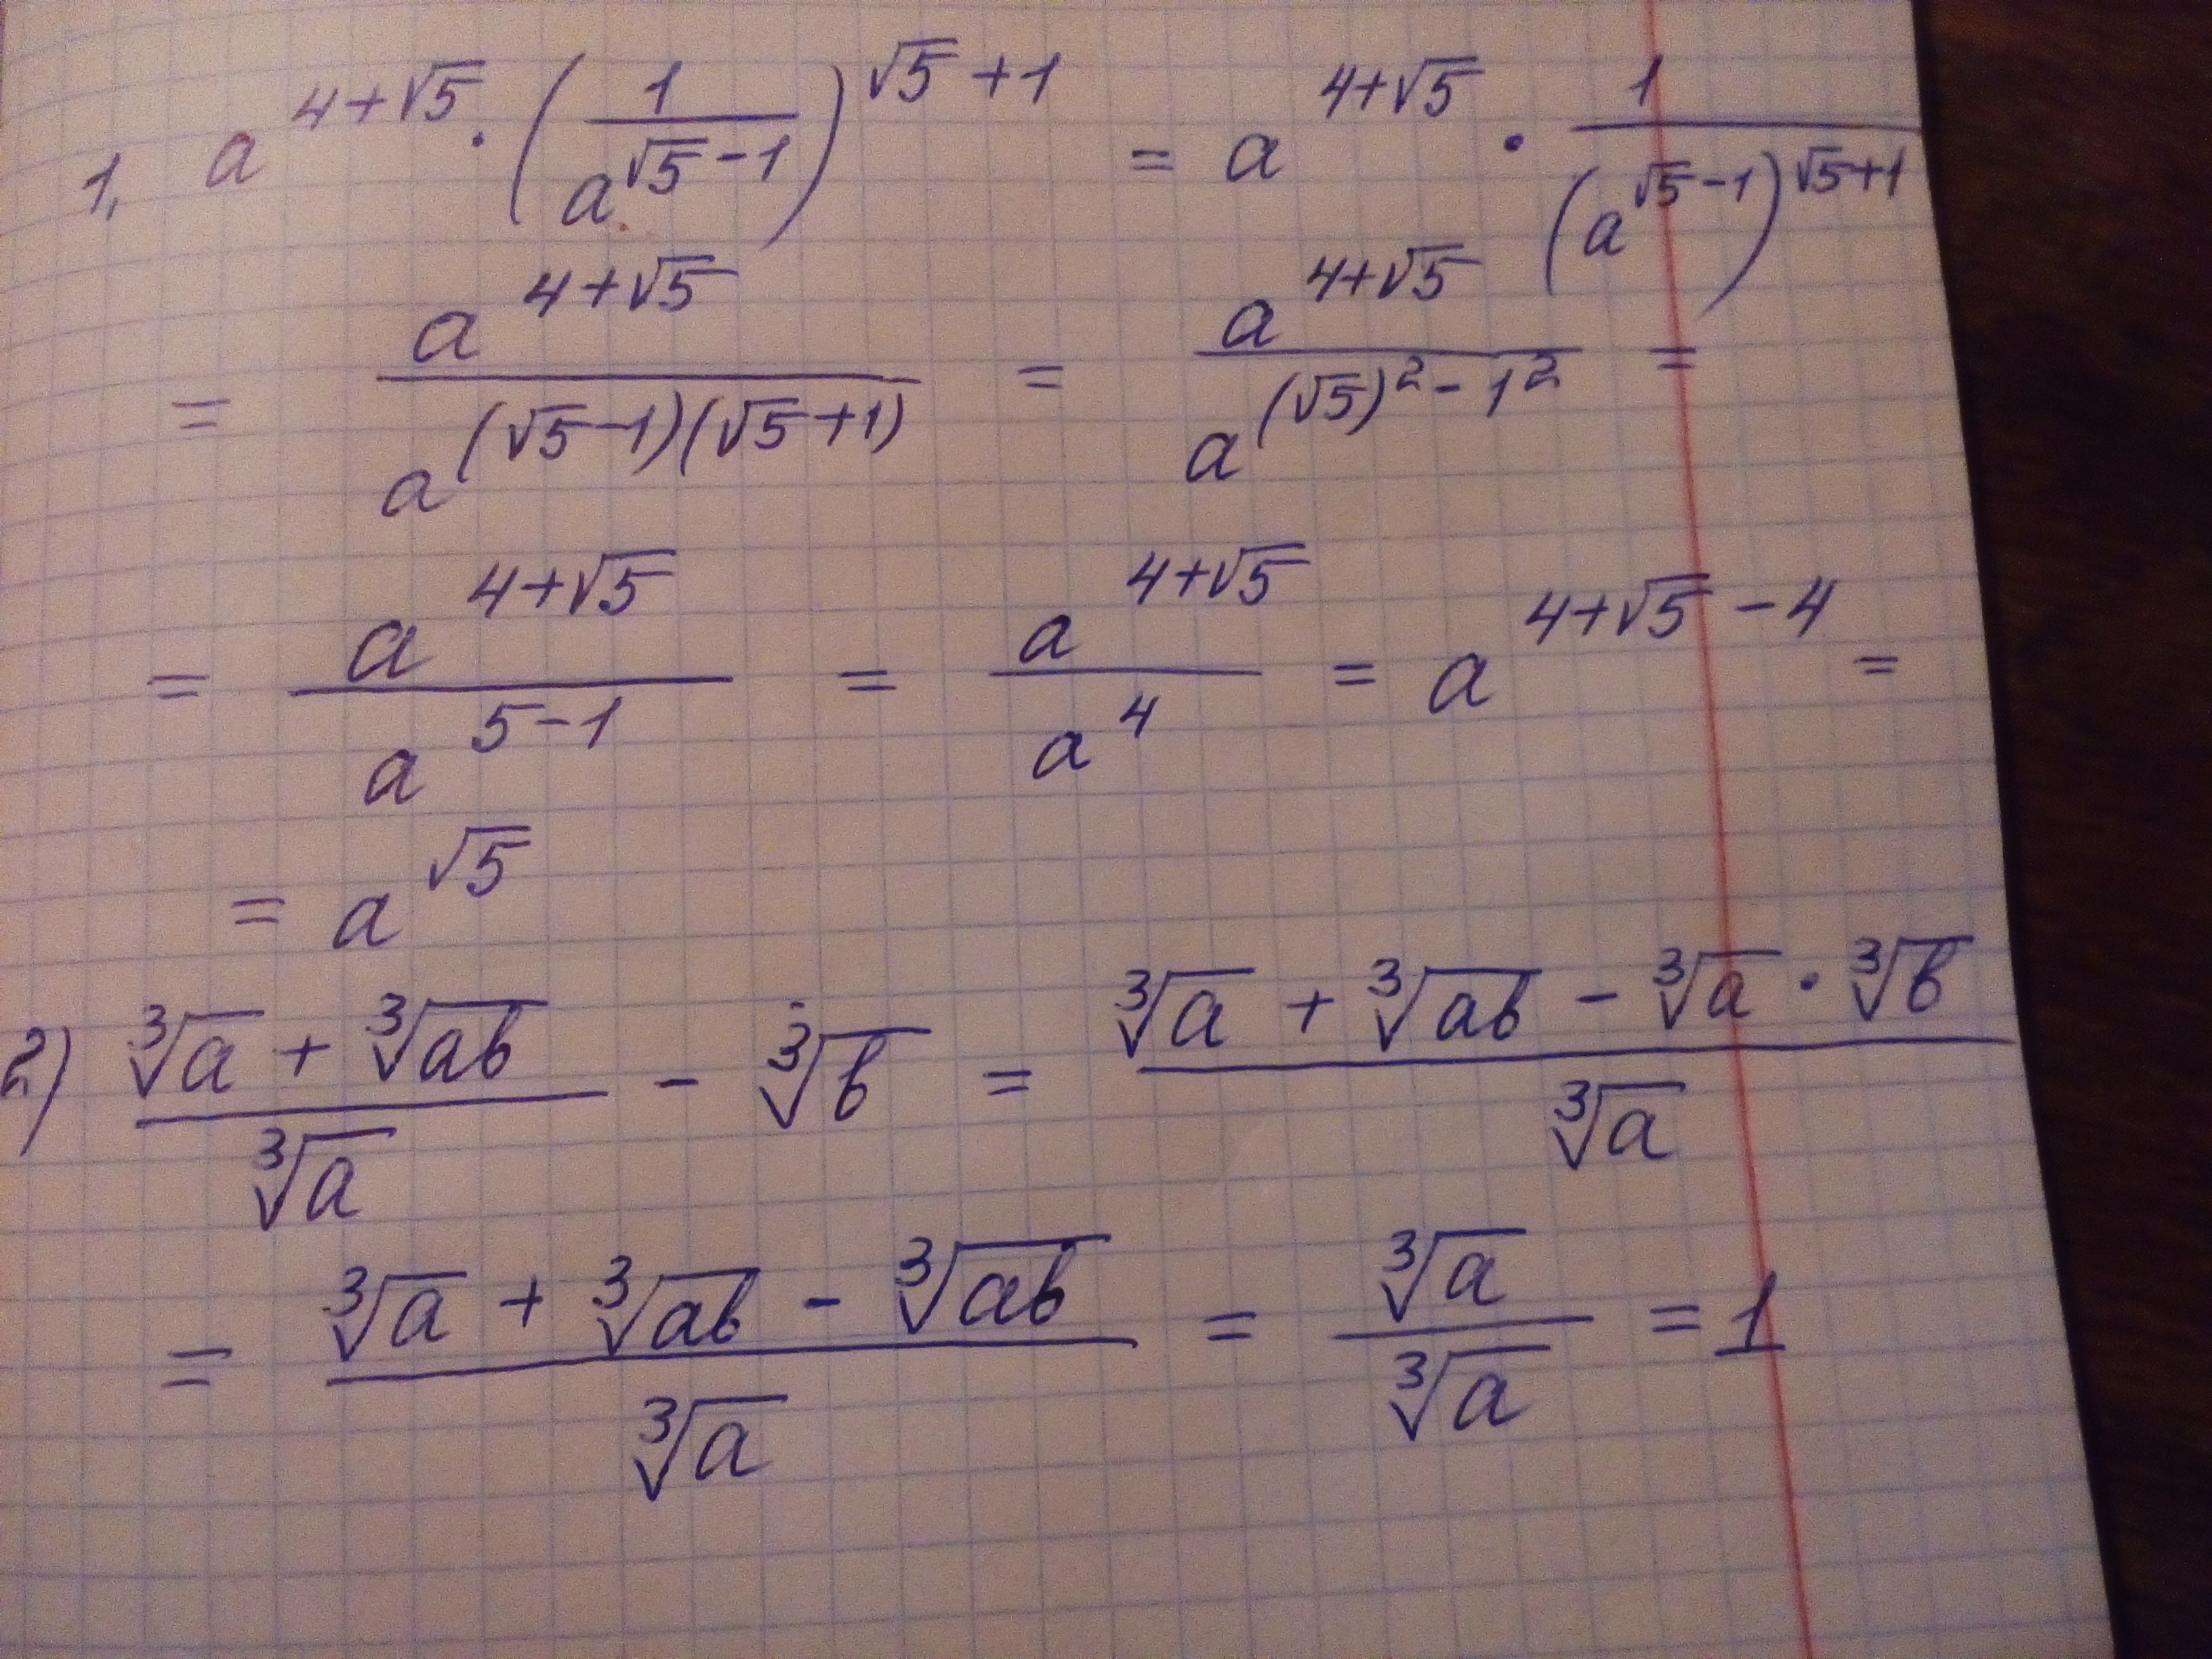 1, a^{4+√5} · (1/a^{√5-1})^{√5+1} = a^{4+√5} · 1/(a^{√5-1})^{√5+1}
= a^{4+√5}/a^{(√5-1)(√5+1)} = a^{4+√5}/a^{(√5)²-1²} =
= a^{4+√5}/a^{5-1} = a^{4+√5}/a^4 = a^{4+√5-4} =
= a^{√5}
2) (∛a + ∛ab)/∛a - ∛b = (∛a + ∛ab - ∛a · ∛b)/∛a
= (∛a + ∛ab - ∛ab)/∛a = ∛a/∛a = 1